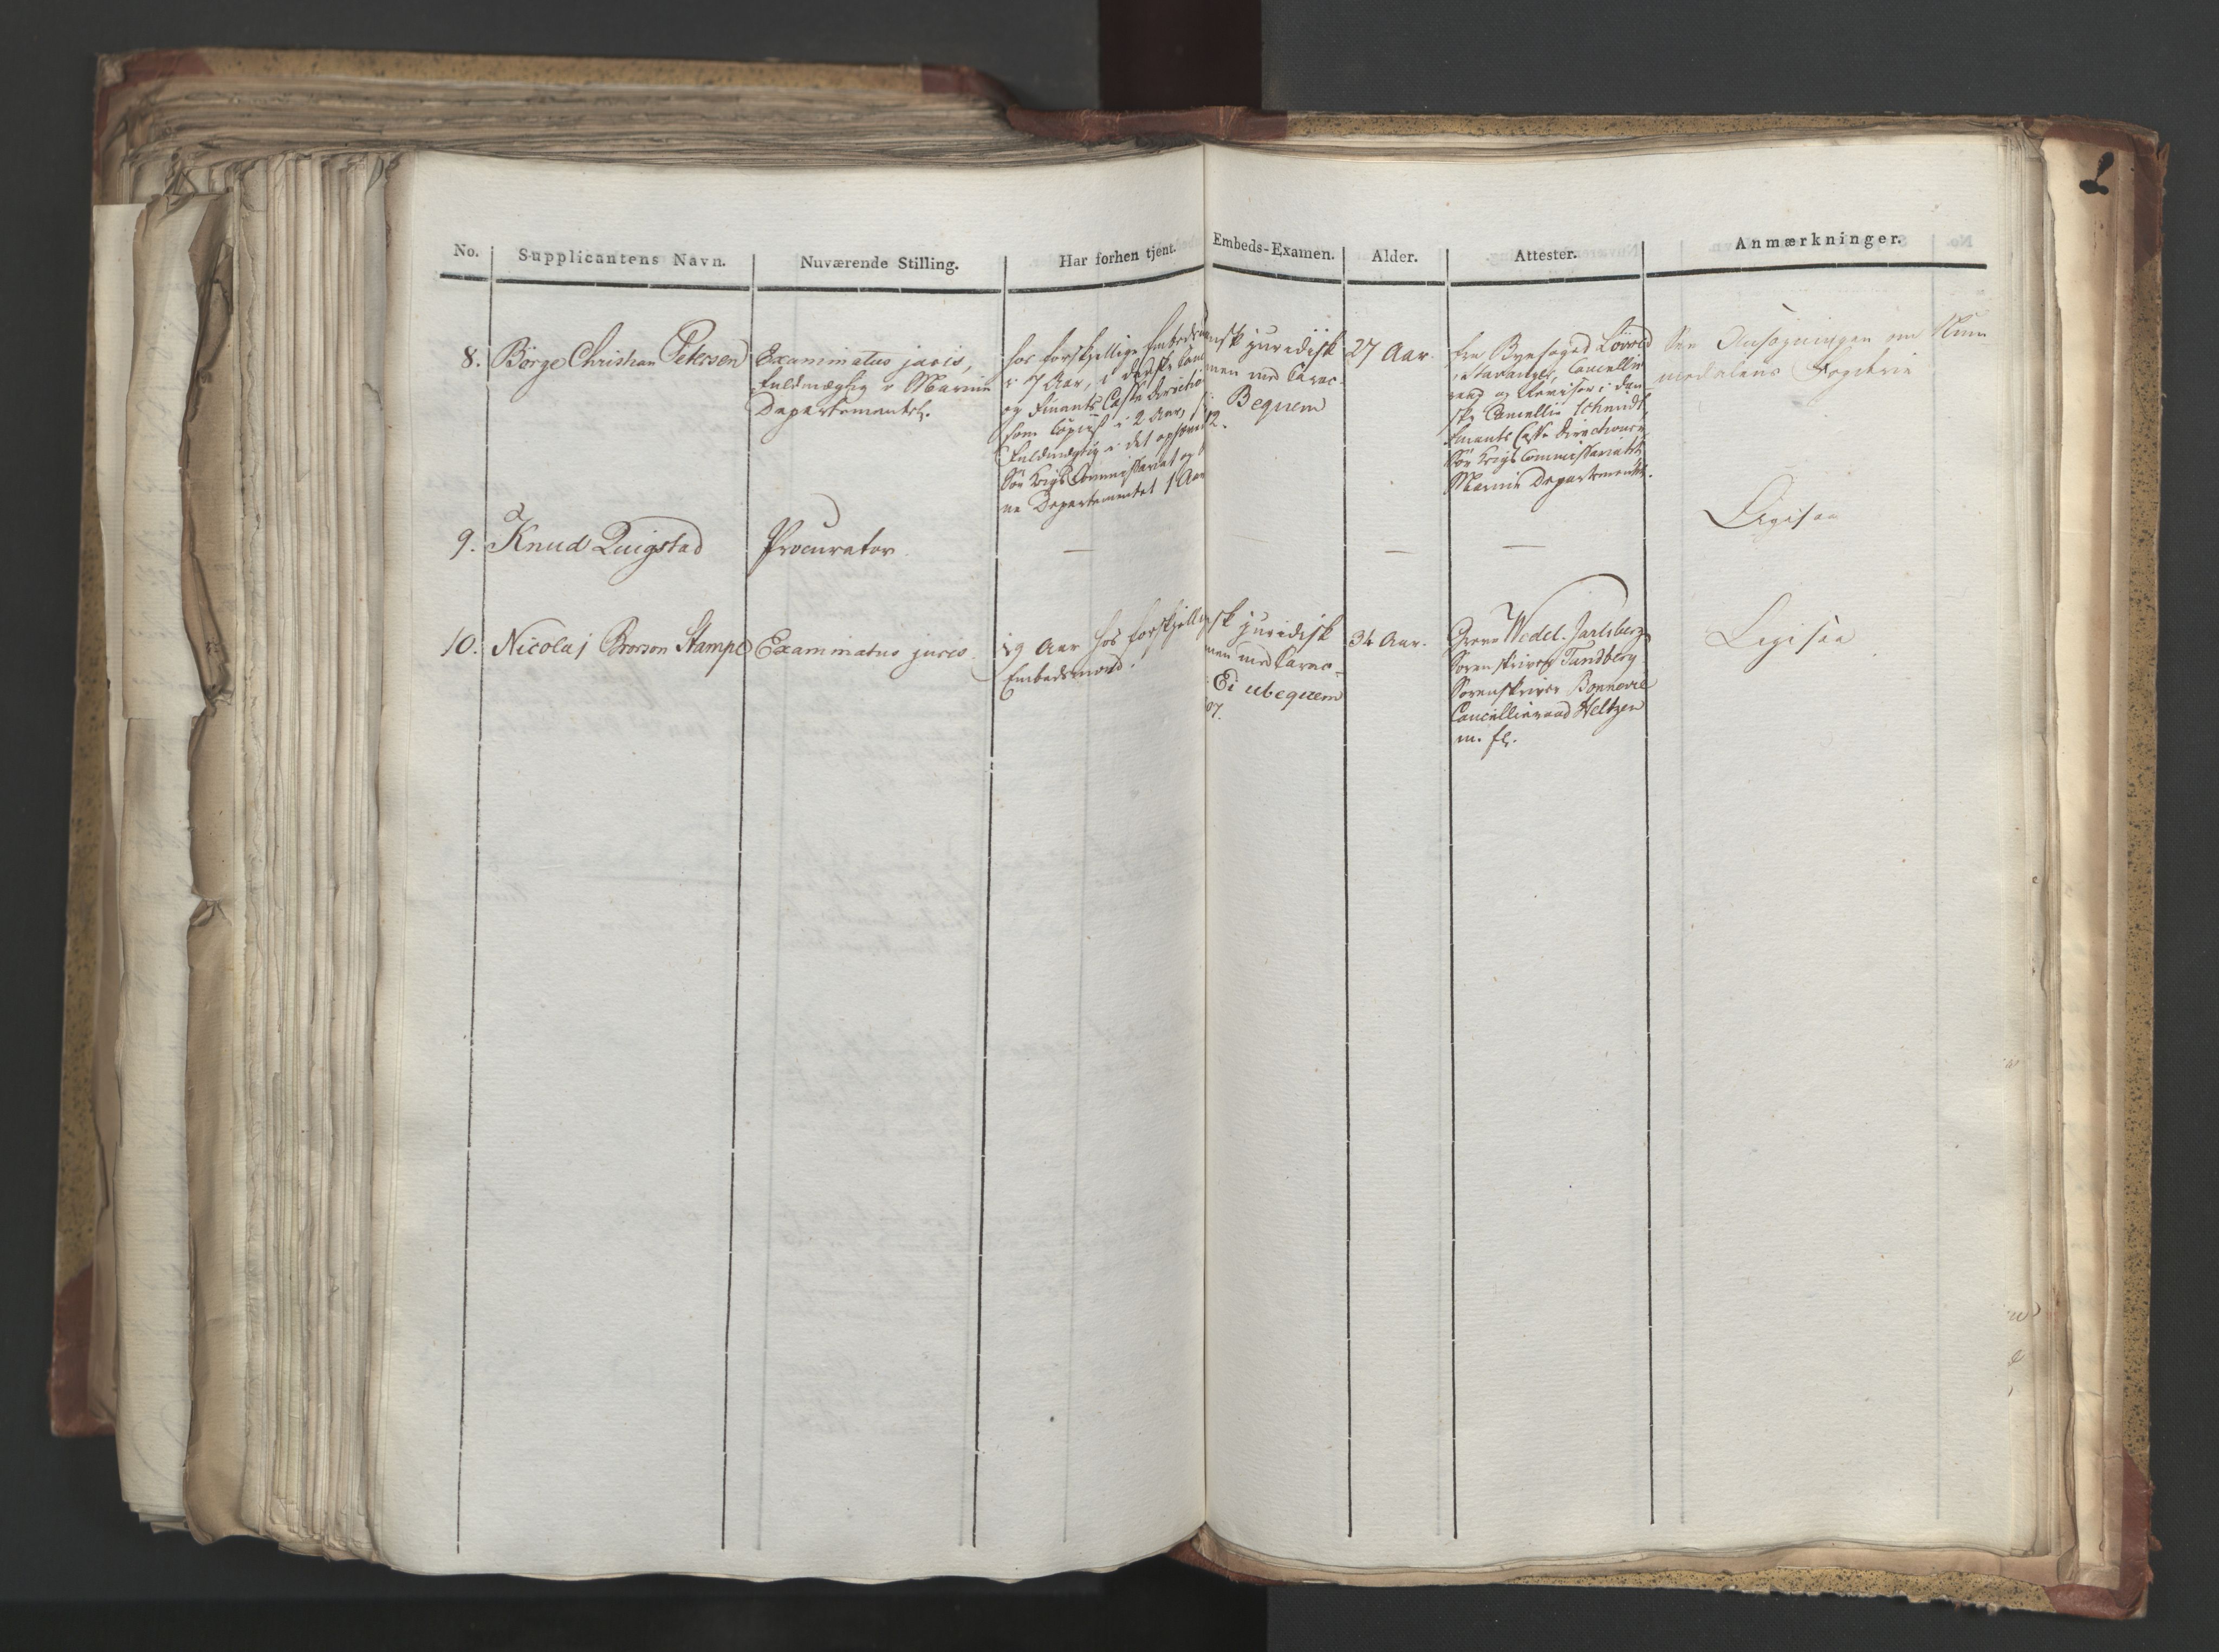 No.
Supplicantens Navn.
Nuværende Stilling.
Har forhen tjent.
Embeds-Examen.
Alder.
Attester.
Anmærkninger.
8.
Börge Christian Petersen
Examinatus juris,
Fuldmægtig i Marine
Departementet.
hos forskjellige Embeds
i 7 Aar, i danske Canc
og Finants Casse Directio
som Copiist i 2 Aar,
Fuldmægtig i det ophæv
Söe Krigs Commissariat og
ne Departementet 1 Aar
nsk juridisk
men med Carac-
Bequem
12.
27 Aar.
fra Byefoged Lövold
i Stavanger, Cancellie
raad og Revisor i Dan
ske Cancellie Schmidt,
Finants Casse Directionen
Söe Krigs Commissariatet
Marine Departementet.
See Ansøgningen om Num
medalens Fogderie
9.
Knud Quigstad
Procurator.
—
—
—
Ligesaa
10.
Nicolaj Brorson Stampe
Examinatus juris.
19 Aar hos forskjellig
Embedsmænd.
sk juridisk
men med Carac-
Ei ubequem
07.
34 Aar.
Greve Wedel-Jarlsberg
Sorenskriver Tandberg
Sorenskriver Bonnevie
Cancellieraad Heltzen
m. fl.
Ligesaa